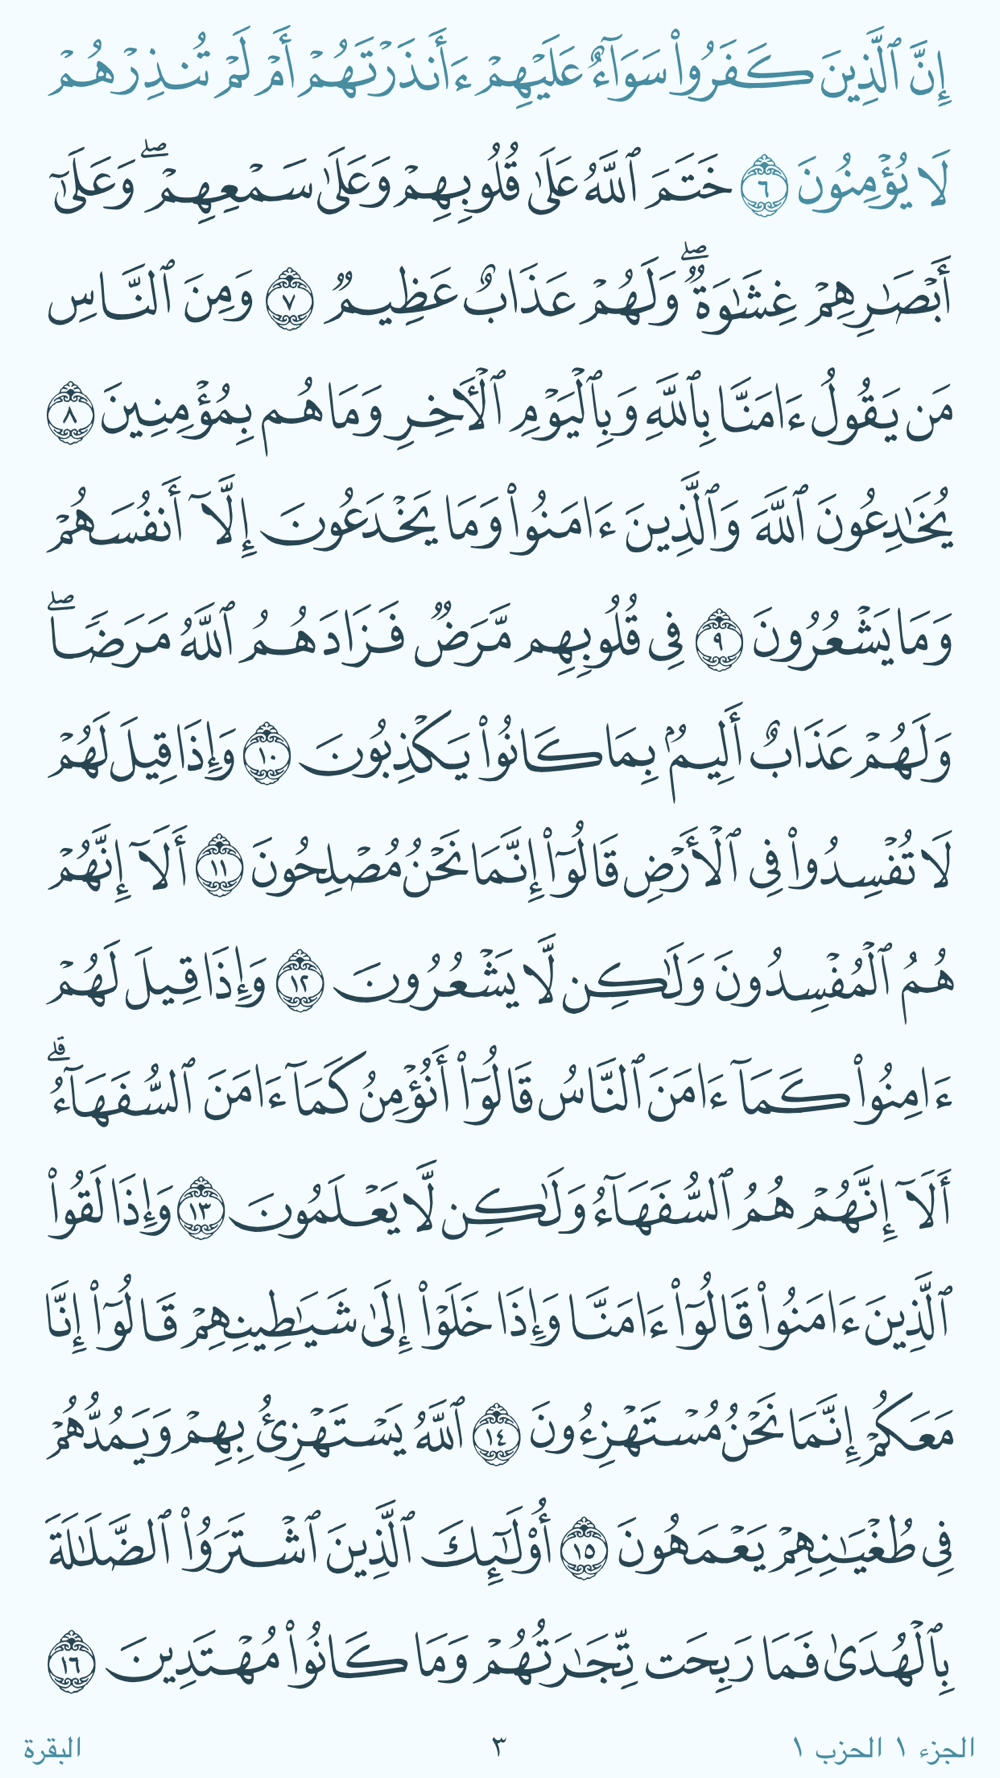 إِنَّ ٱلَّذِينَ كَفَرُوا۟ سَوَآءٌ عَلَيْهِمْ ءَأَنذَرْتَهُمْ أَمْ لَمْ تُنذِرْهُمْ
لَا يُؤْمِنُونَ ٦ خَتَمَ ٱللَّهُ عَلَىٰ قُلُوبِهِمْ وَعَلَىٰ سَمْعِهِمْ ۖ وَعَلَىٰٓ
أَبْصَـٰرِهِمْ غِشَـٰوَةٌ ۖ وَلَهُمْ عَذَابٌ عَظِيمٌ ٧ وَمِنَ ٱلنَّاسِ
مَن يَقُولُ ءَامَنَّا بِٱللَّهِ وَبِٱلْيَوْمِ ٱلْـَٔاخِرِ وَمَا هُم بِمُؤْمِنِينَ ٨
يُخَـٰدِعُونَ ٱللَّهَ وَٱلَّذِينَ ءَامَنُوا۟ وَمَا يَخْدَعُونَ إِلَّآ أَنفُسَهُمْ
وَمَا يَشْعُرُونَ ٩ فِى قُلُوبِهِم مَّرَضٌ فَزَادَهُمُ ٱللَّهُ مَرَضًا ۖ
وَلَهُمْ عَذَابٌ أَلِيمٌۢ بِمَا كَانُوا۟ يَكْذِبُونَ ١٠ وَإِذَا قِيلَ لَهُمْ
لَا تُفْسِدُوا۟ فِى ٱلْأَرْضِ قَالُوٓا۟ إِنَّمَا نَحْنُ مُصْلِحُونَ ١١ أَلَآ إِنَّهُمْ
هُمُ ٱلْمُفْسِدُونَ وَلَـٰكِن لَّا يَشْعُرُونَ ١٢ وَإِذَا قِيلَ لَهُمْ
ءَامِنُوا۟ كَمَآ ءَامَنَ ٱلنَّاسُ قَالُوٓا۟ أَنُؤْمِنُ كَمَآ ءَامَنَ ٱلسُّفَهَآءُ ۗ
أَلَآ إِنَّهُمْ هُمُ ٱلسُّفَهَآءُ وَلَـٰكِن لَّا يَعْلَمُونَ ١٣ وَإِذَا لَقُوا۟
ٱلَّذِينَ ءَامَنُوا۟ قَالُوٓا۟ ءَامَنَّا وَإِذَا خَلَوْا۟ إِلَىٰ شَيَـٰطِينِهِمْ قَالُوٓا۟ إِنَّا
مَعَكُمْ إِنَّمَا نَحْنُ مُسْتَهْزِءُونَ ١٤ ٱللَّهُ يَسْتَهْزِئُ بِهِمْ وَيَمُدُّهُمْ
فِى طُغْيَـٰنِهِمْ يَعْمَهُونَ ١٥ أُو۟لَـٰٓئِكَ ٱلَّذِينَ ٱشْتَرَوُا۟ ٱلضَّلَـٰلَةَ
بِٱلْهُدَىٰ فَمَا رَبِحَت تِّجَـٰرَتُهُمْ وَمَا كَانُوا۟ مُهْتَدِينَ ١٦
الجزء ١ الحزب ١ ٣ البقرة